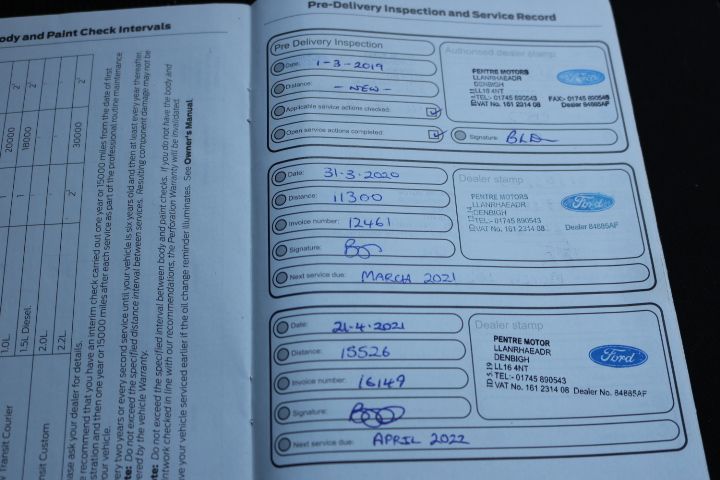 Body and Paint Check Intervals
20000 2'
18000 2'
30000 2'
2'
1.0L
1.5L Diesel
2.0L
2.2L
Transit Courier
Transit Custom
ase ask your dealer for details.
e recommend that you have an interim check carried out one year or 15000 miles from the date of first
stration and then one year or 15000 miles after each service as part of the professional routine maintenance
our vehicle.
ery two years or every second service until your vehicle is six years old and then at least every year thereafter.
te: Do not exceed the specified distance interval between services. Resulting component damage may not be
ered by the vehicle Warranty.
te: Do not exceed the specified interval between body and paint checks. If you do not have the body and
ntwork checked in line with our recommendations, the Perforation Warranty will be invalidated.
ve your vehicle serviced earlier if the oil change reminder illuminates. See Owner's Manual.
Pre-Delivery Inspection and Service Record
Pre Delivery Inspection
Date: 1-3-2019
Distance: - NEW -
Applicable service actions checked:
Open service actions completed:
Authorised dealer stamp
PENTRE MOTORS
LLANRHAEADR
DENBIGH
LL16 4NT
TEL:- 01745 890543 FAX:- 01745 890548
VAT No. 161 2314 08 Dealer 84885AF
Ford
Signature:
Date: 31-3-2020
Distance: 11300
Invoice number: 12461
Signature:
Next service due: MARCH 2021
Dealer stamp
PENTRE MOTORS
LLANRHAEADR
DENBIGH
TEL:- 01745 890543
VAT No. 161 2314 08 Dealer 84885AF
Ford
Date: 21-4-2021
Distance: 15526
Invoice number: 16149
Signature:
Next service due: APRIL 2022
Dealer stamp
PENTRE MOTOR
LLANRHAEADR
DENBIGH
LL16 4NT
TEL:- 01745 890543
VAT No. 161 2314 08 Dealer No. 84885AF
ID 5.19
Ford